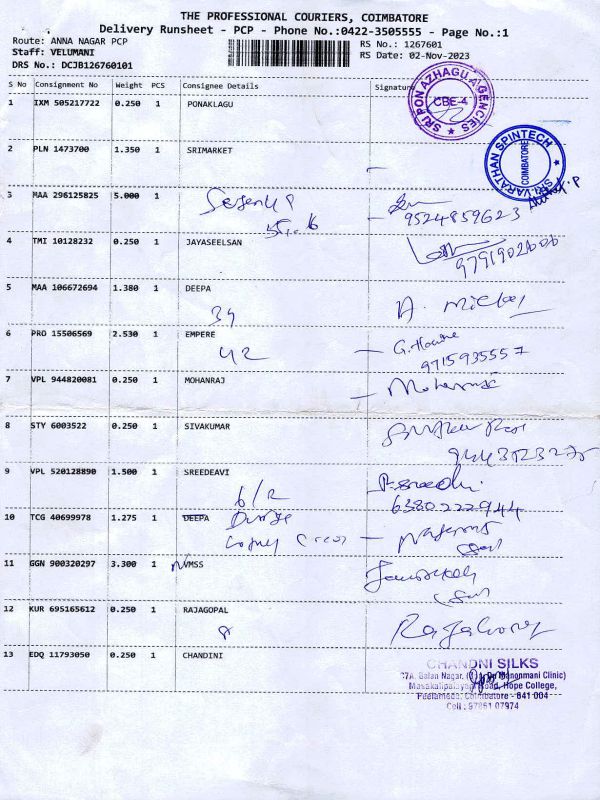 THE PROFESSIONAL COURIERS, COIMBATORE
Delivery Runsheet - PCP - Phone No.:0422-3505555 - Page No.:1
Route: ANNA NAGAR PCP
Staff: VELUMANI
DRS No.: DCJB126760101
RS No.: 1267601
RS Date: 02-Nov-2023
S No Consignment No Weight PCS Consignee Details Signature
SRI PON AZHAGU AGENCIES
CBE-4
1 IXM 505217722 0.250 1 PONAKLAGU
2 PLN 1473700 1.350 1 SRIMARKET
SRI. VARATHAN SPINTECH
COIMBATORE
3 MAA 296125825 5.000 1
9524859623
4 TMI 10128232 0.250 1 JAYASEELSAN
9791902606
5 MAA 106672694 1.380 1 DEEPA
34
6 PRO 15506569 2.530 1 EMPERE
42
9715935557
7 VPL 944820081 0.250 1 MOHANRAJ
8 STY 6003522 0.250 1 SIVAKUMAR
9 VPL 520128890 1.500 1 SREEDEAVI
P. sreedevi
6380222944
10 TCG 40699978 1.275 1 DEEPA
11 GGN 900320297 3.300 1 VMSS
12 KUR 695165612 0.250 1 RAJAGOPAL
8
13 EDQ 11793050 0.250 1 CHANDINI
CHANDNI SILKS
Masakalipalayam Road, Hope College,
Peelamedu, Coimbatore - 641 004
Cell : 97861 07974